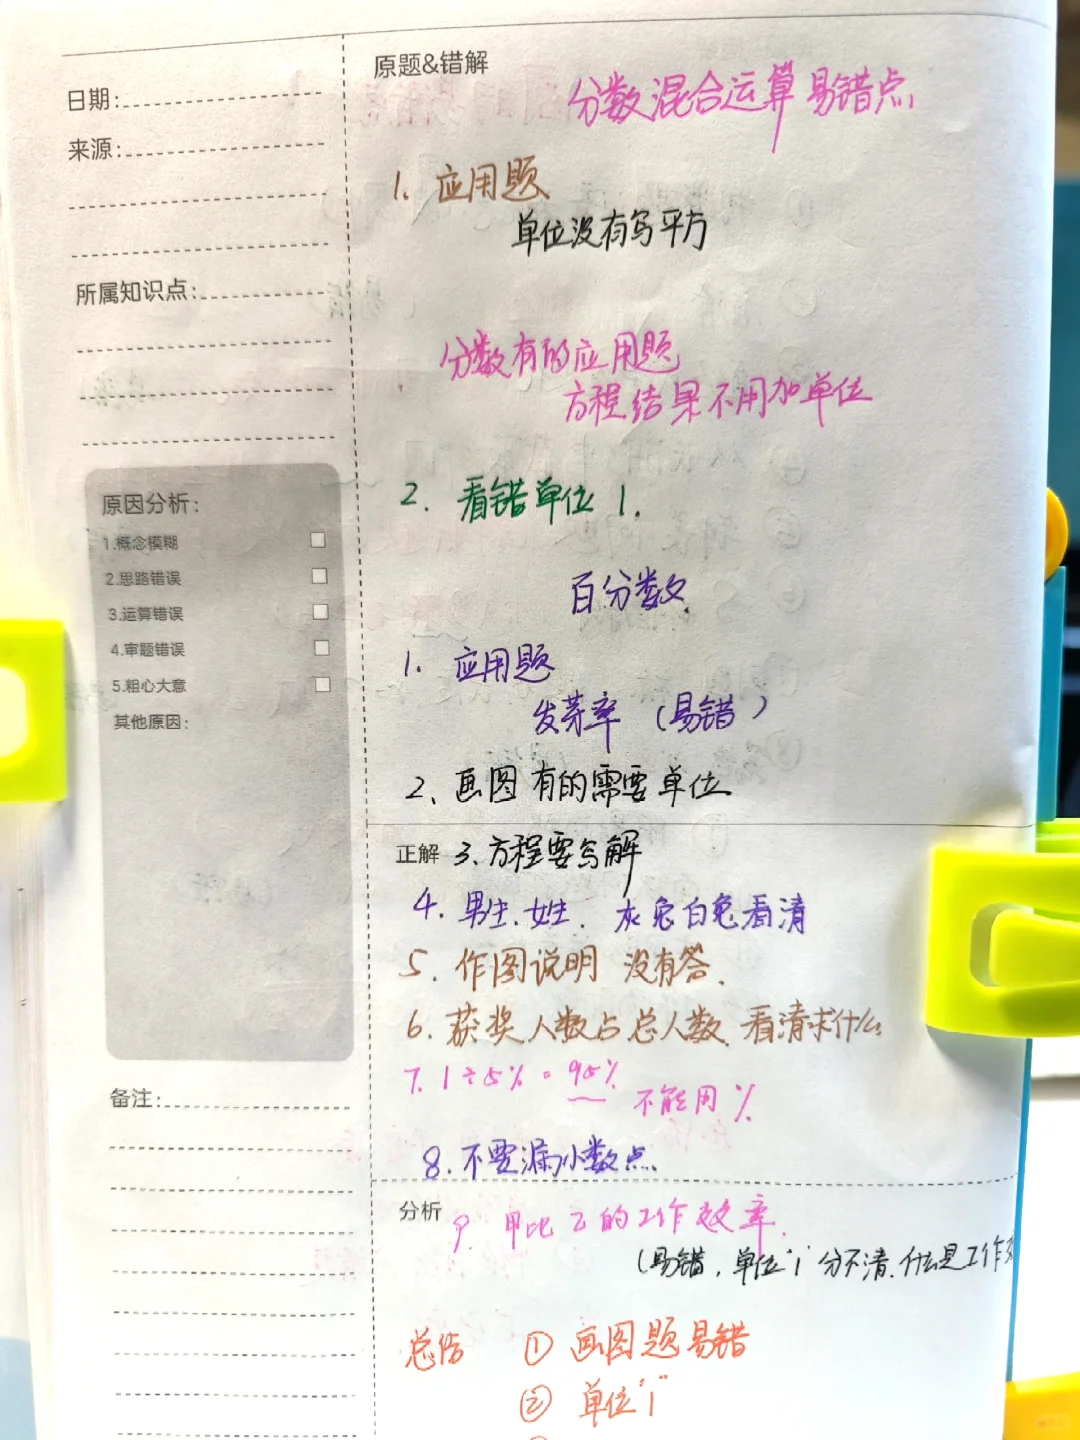 日期:
来源:
所属知识点:
原因分析:
1.概念模糊
2.思路错误
3.运算错误
4.审题错误
5.粗心大意
其他原因:
备注:
原题&错解
分数混合运算易错点
1. 应用题
单位没有写平方
分数有的应用题
方程结果不用加单位
2. 看错单位1.
百分数
1. 应用题
发芽率 (易错)
2、画图有的需要单位
正解 3、方程要写解
4. 男生、女生. 灰兔白兔看清
5. 作图说明 没有答.
6. 获奖人数占总人数 看清求什么
7. 1÷5% = 95% 不能用%
8. 不要漏小数点.
分析 9. 甲比乙的工作效率.
(易错,单位"1"分不清.什么是工作
总结 ① 画图题易错
② 单位"1"